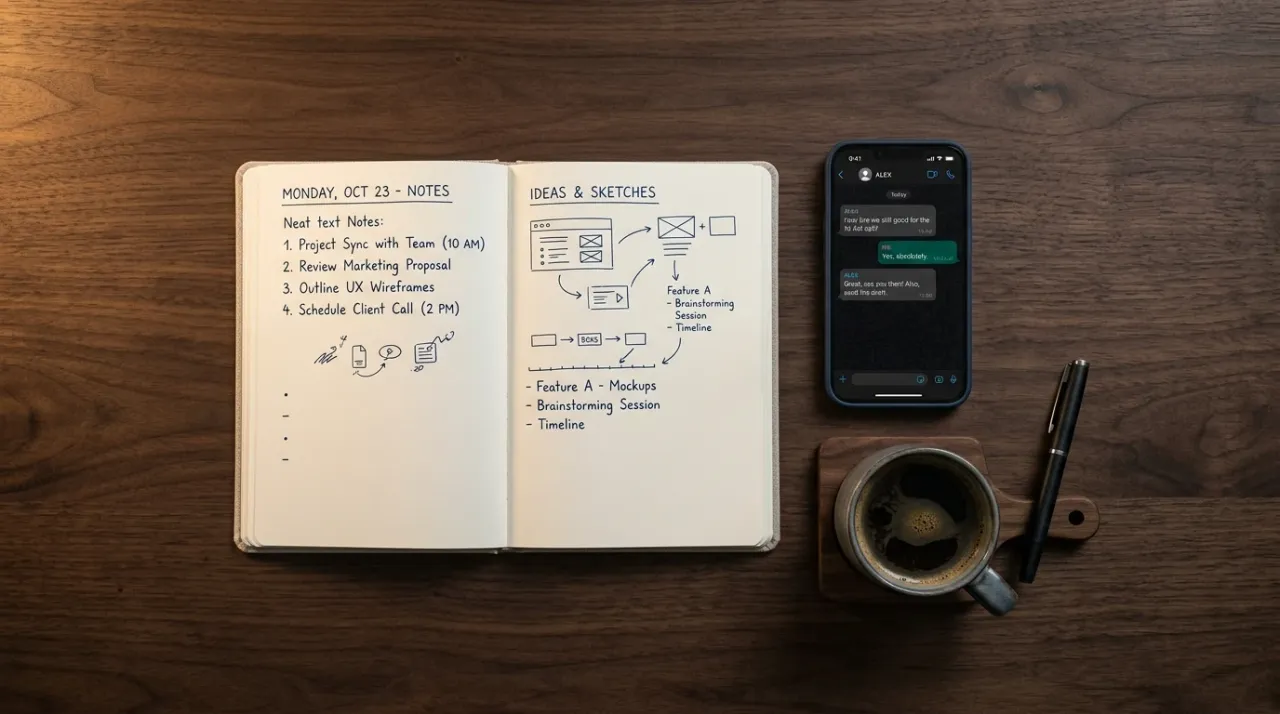 MONDAY, OCT 23 - NOTES
Neat text Notes:
1. Project Sync with Team (10 AM)
2. Review Marketing Proposal
3. Outline UX Wireframes
4. Schedule Client Call (2 PM)
IDEAS & SKETCHES
Feature A
- Brainstorming
Session
- Timeline
- Feature A - Mockups
- Brainstorming Session
- Timeline
ALEX
Today
we still good for the
Yes,
ALEX
Great, you then! Also,
the